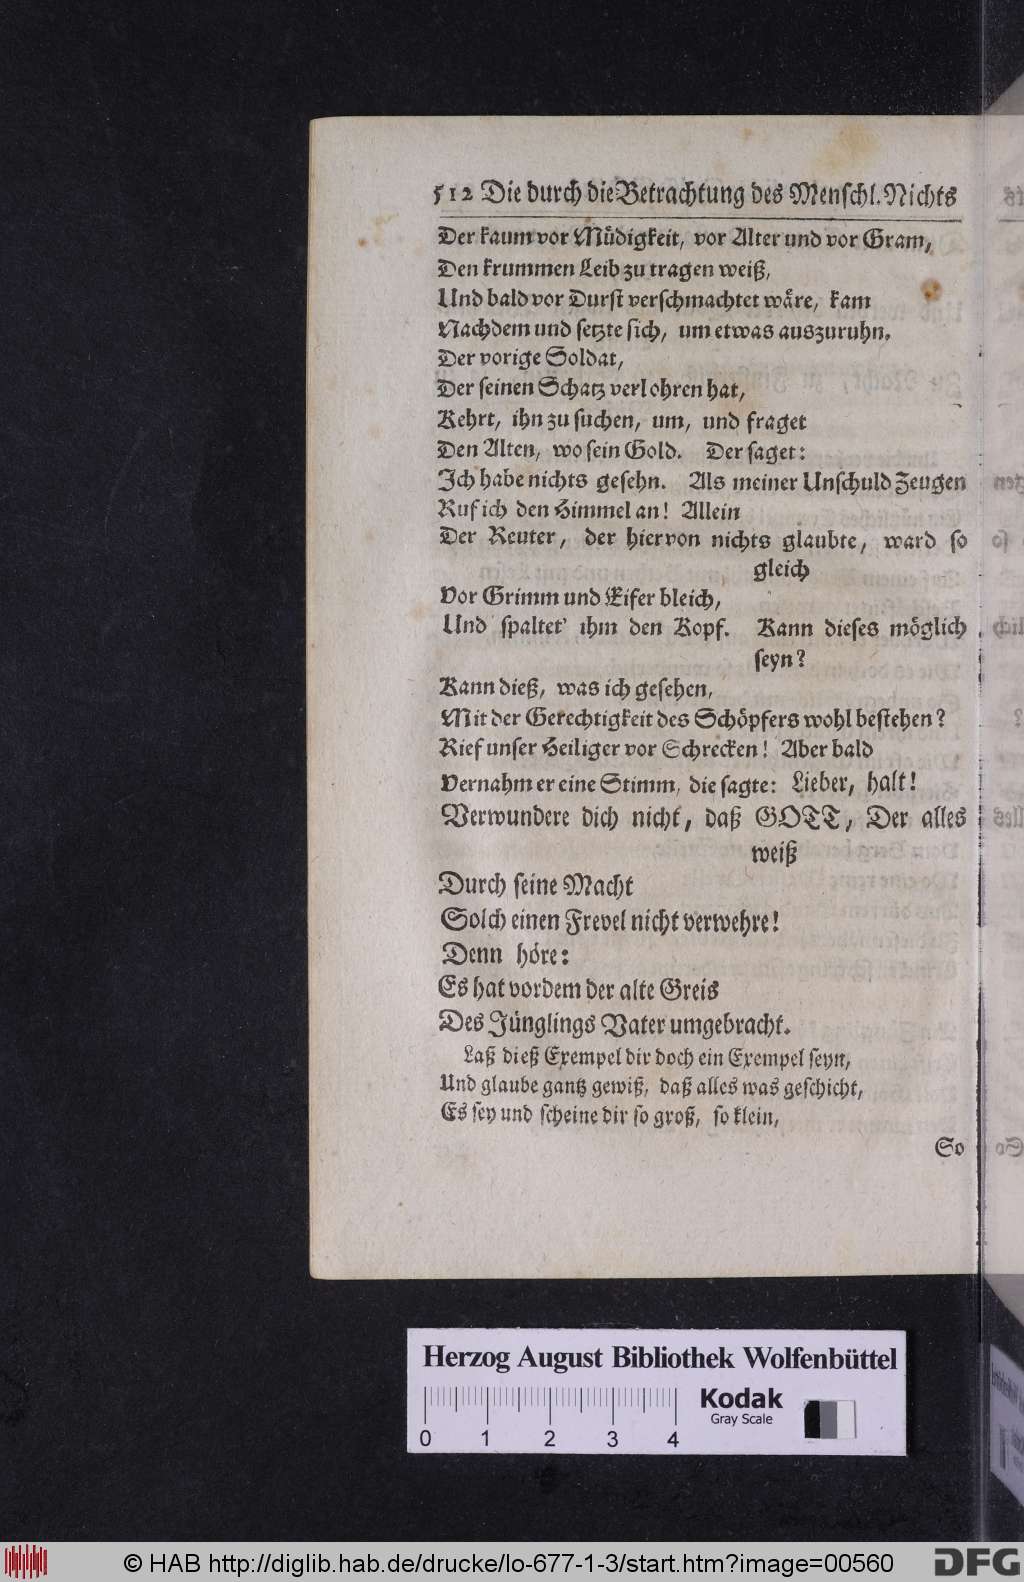 512 Die durch die Betrachtung des Menschl. Nichts
Der kaum vor Müdigkeit, vor Alter und vor Gram,
Den krummen Leib zu tragen weiß,
Und bald vor Durst verschmachtet wäre, kam
Nachdem und setzte sich, um etwas auszuruhn.
Der vorige Soldat,
Der seinen Schatz verlohren hat,
Kehrt, ihn zu suchen, um, und fraget
Den Alten, wo sein Gold. Der saget:
Ich habe nichts gesehn. Als meiner Unschuld Zeugen
Ruf ich den Himmel an! Allein
Der Reuter, der hiervon nichts glaubte, ward so
gleich
Vor Grimm und Eifer bleich,
Und spaltet' ihm den Kopf. Kann dieses möglich
seyn?
Kann dieß, was ich gesehen,
Mit der Gerechtigkeit des Schöpfers wohl bestehen?
Rief unser Heiliger vor Schrecken! Aber bald
Vernahm er eine Stimm, die sagte: Lieber, halt!
Verwundere dich nicht, daß GOTT, Der alles
weiß
Durch seine Macht
Solch einen Frevel nicht verwehre!
Denn höre:
Es hat vordem der alte Greis
Des Jünglings Vater umgebracht.
Laß dieß Exempel dir doch ein Exempel seyn,
Und glaube gantz gewiß, daß alles was geschicht,
Es sey und scheine dir so groß, so klein,
So
Herzog August Bibliothek Wolfenbüttel
Kodak
Gray Scale
0 1 2 3 4
© HAB http://diglib.hab.de/drucke/lo-677-1-3/start.htm?image=00560
DFG